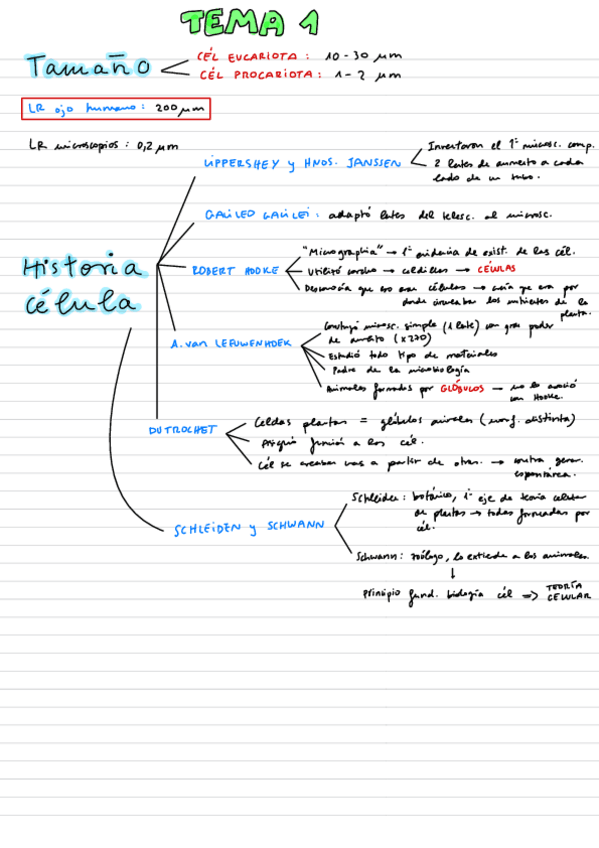 TEMA 1
Tamaño
CÉL EUCARIOTA : 10 - 30 μm
CÉL PROCARIOTA : 1 - 2 μm
LR ojo humano : 200 μm
LR microscopios : 0,2 μm
Historia célula
LIPPERSHEY y HNOS. JANSSEN
Inventaron el 1º microsc. comp.
2 lentes de aumento a cada
lado de un tubo.
GALILEO GALILEI : adaptó lentes del telesc. al microsc.
ROBERT HOOKE
"Micrographia" → 1ª evidencia de exist. de las cél.
Utilizó corcho → celdillas → CÉLULAS
Desconocía que eso eran células → creía que era por
donde circulaban los nutrientes de la
planta.
A. van LEEUWENHOEK
Construyó microsc. simple (1 lente) con gran poder
de aumento (x270)
Estudió todo tipo de materiales
Padre de la microbiología
Animales formados por GLÓBULOS — no lo asoció
con Hooke.
DUTROCHET
Celdas plantas = glóbulos animales (morf. distinta)
Asignó función a las cél.
Cél se creaban unas a partir de otras. → contra gener.
espontánea.
SCHLEIDEN y SCHWANN
Schleiden : botánico, 1º eje de teoría celular
de plantas → todas formadas por
cél.
Schwann : zoólogo, lo extiende a los animales.
↓
Principio fund. biología cél => TEORÍA
CELULAR